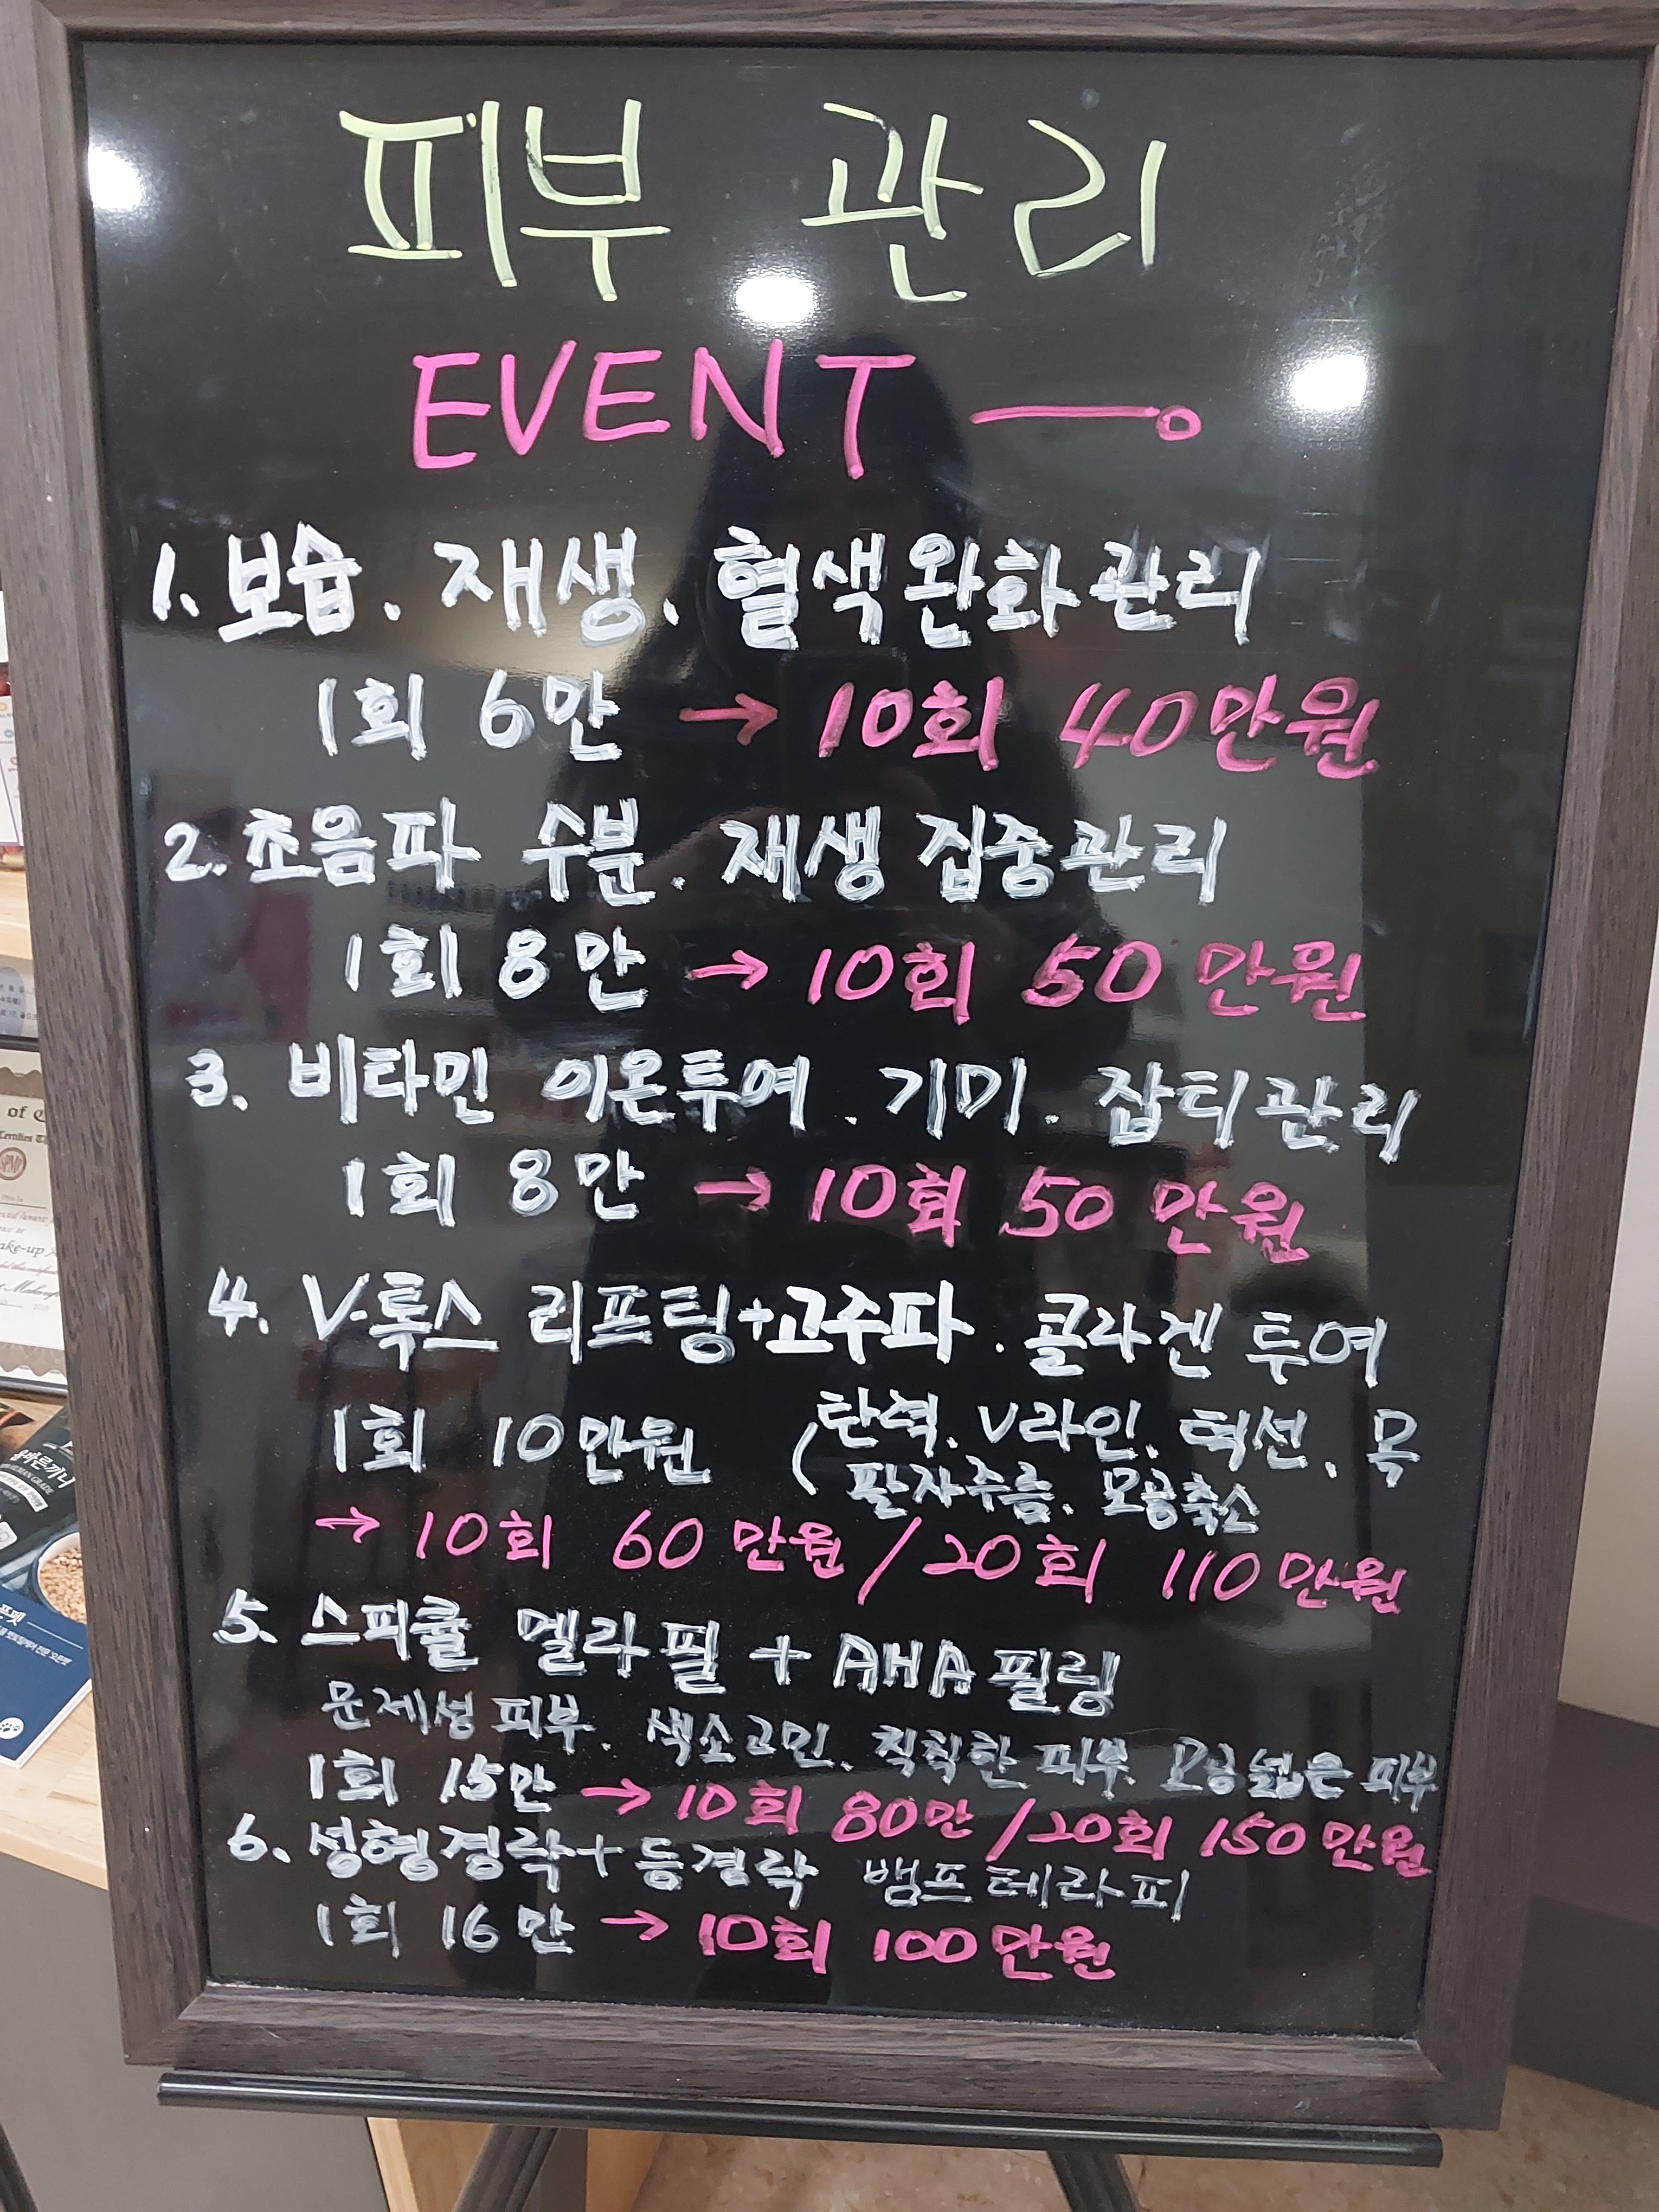 피부 관리
EVENT
1. 보습. 재생. 혈색완화관리
1회 6만 → 10회 40만원
2. 초음파 수분. 재생 집중관리
1회 8만 → 10회 50만원
3. 비타민 이온투여. 기미. 잡티관리
1회 8만 → 10회 50만원
4. V-톡스 리프팅+고주파. 콜라겐 투여
1회 10만원 (탄력. V라인. 턱선. 목
팔자주름. 모공축소
→ 10회 60만원 / 20회 110만원
5. 스피큘 멜라필 + AHA필링
문제성 피부. 색소고민. 칙칙한 피부. 모공넓은 피부
1회 15만 → 10회 80만 / 20회 150만원
6. 성형경락+등경락 뱀프테라피
1회 16만 → 10회 100만원
of
ake-up
HUMAN GRADE